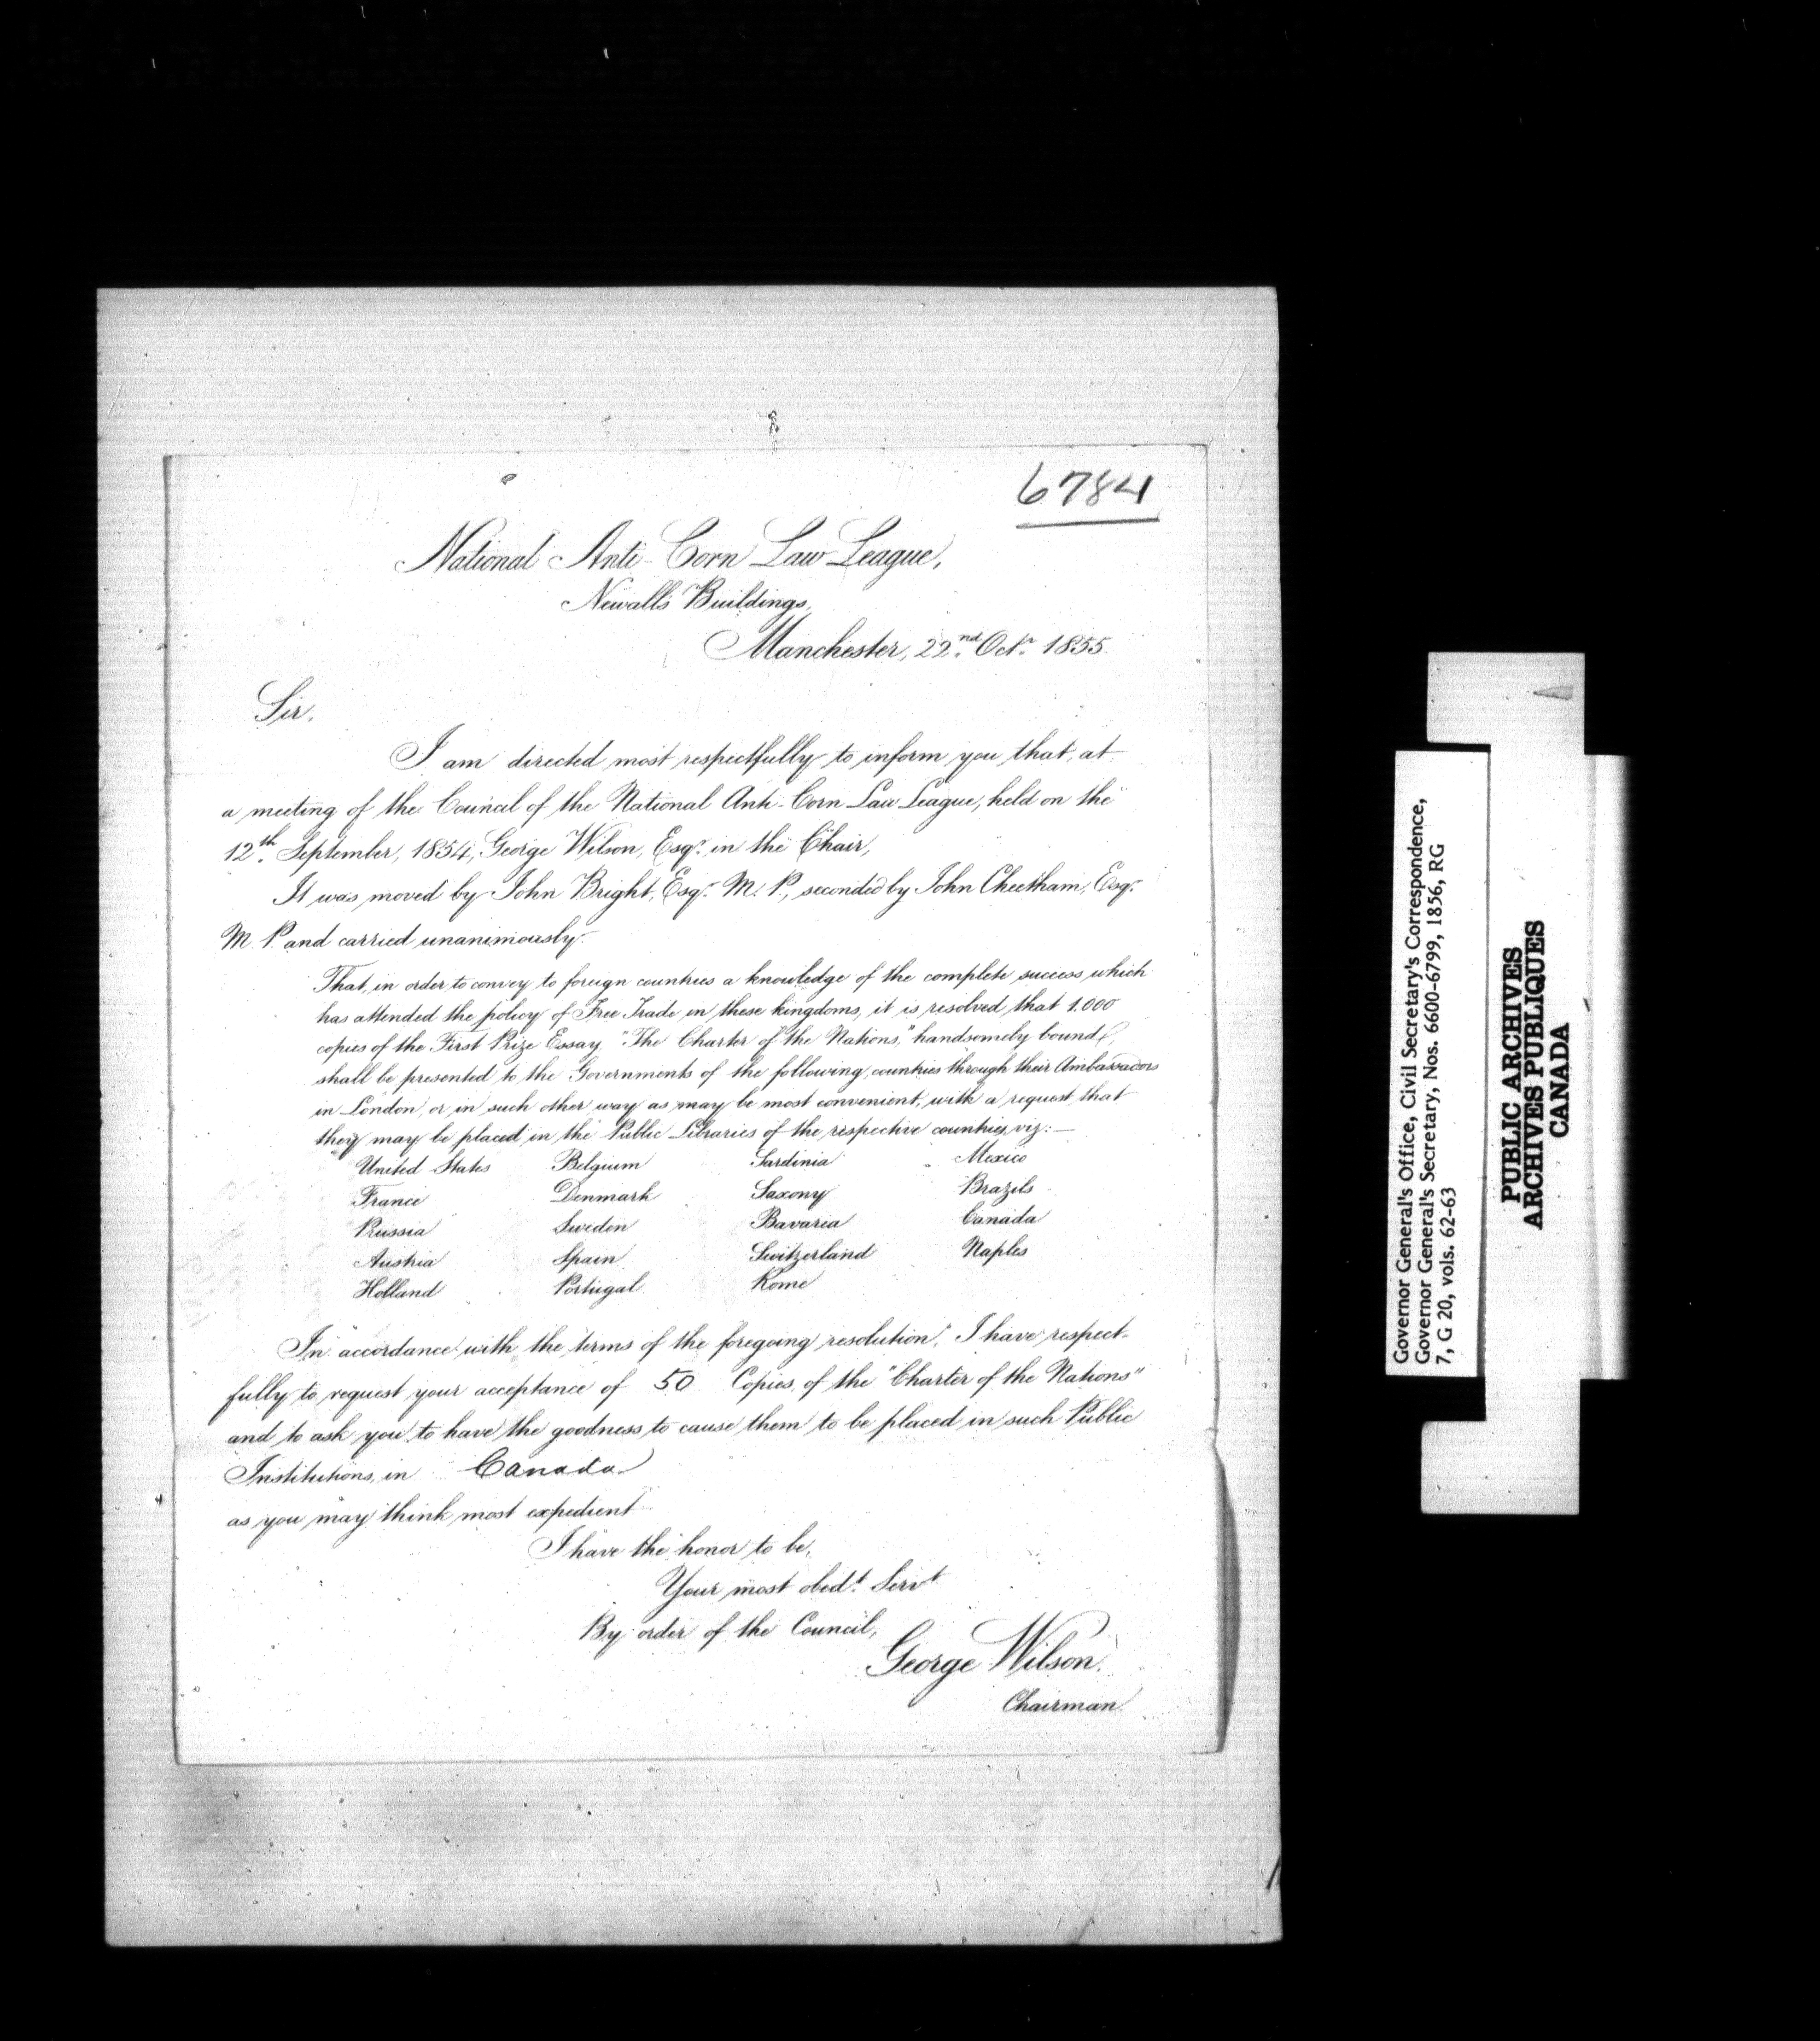 6784
National Anti-Corn Law League,
Newall's Buildings,
Manchester, 22nd. Octr. 1855.
Sir,
I am directed most respectfully to inform you that, at
a meeting of the Council of the National Anti-Corn Law League, held on the
12th. September, 1854, George Wilson, Esqr. in the Chair,
It was moved by John Bright, Esqr. M.P., seconded by John Cheetham, Esqr.
M.P. and carried unanimously.
That, in order to convey to foreign countries a knowledge of the complete success which
has attended the policy of Free Trade in these kingdoms, it is resolved that 1.000
copies of the First Prize Essay "The Charter of the Nations," handsomely bound,
shall be presented to the Governments of the following countries through their Ambassadors
in London, or in such other way as may be most convenient, with a request that
they may be placed in the Public Libraries of the respective countries, viz:—
United States Belgium Sardinia Mexico
France Denmark Saxony Brazils
Prussia Sweden Bavaria Canada
Austria Spain Switzerland Naples
Holland Portugal Rome
In accordance with the terms of the foregoing resolution, I have respect-
fully to request your acceptance of 50 Copies, of the "Charter of the Nations"
and to ask you to have the goodness to cause them to be placed in such Public
Institutions, in Canada
as you may think most expedient
I have the honor to be,
Your most obedt. Servt
By order of the Council,
George Wilson.
Chairman.
Governor General's Office, Civil Secretary's Correspondence,
Governor General's Secretary, Nos. 6600-6799, 1856, RG
7, G 20, vols. 62-63
PUBLIC ARCHIVES
ARCHIVES PUBLIQUES
CANADA